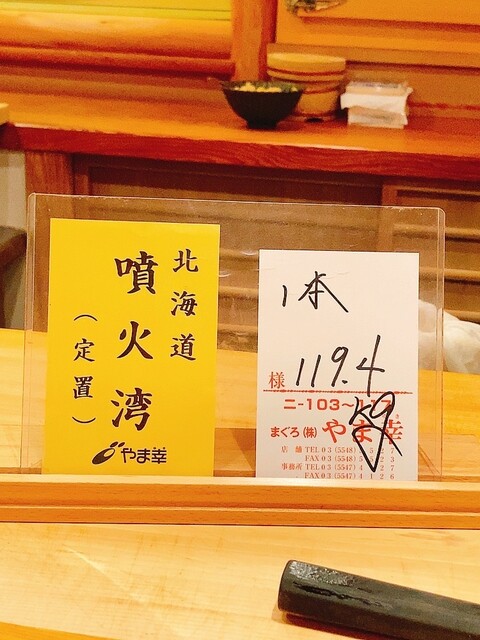 北海道
噴火湾
（定置）
やま幸
1本
様 119.4
ニ-103~117
まぐろ(株) やま幸
店舗 TEL 03 (5548)
FAX 03 (5548)
事務所 TEL 03 (5547)
FAX 03 (5547)